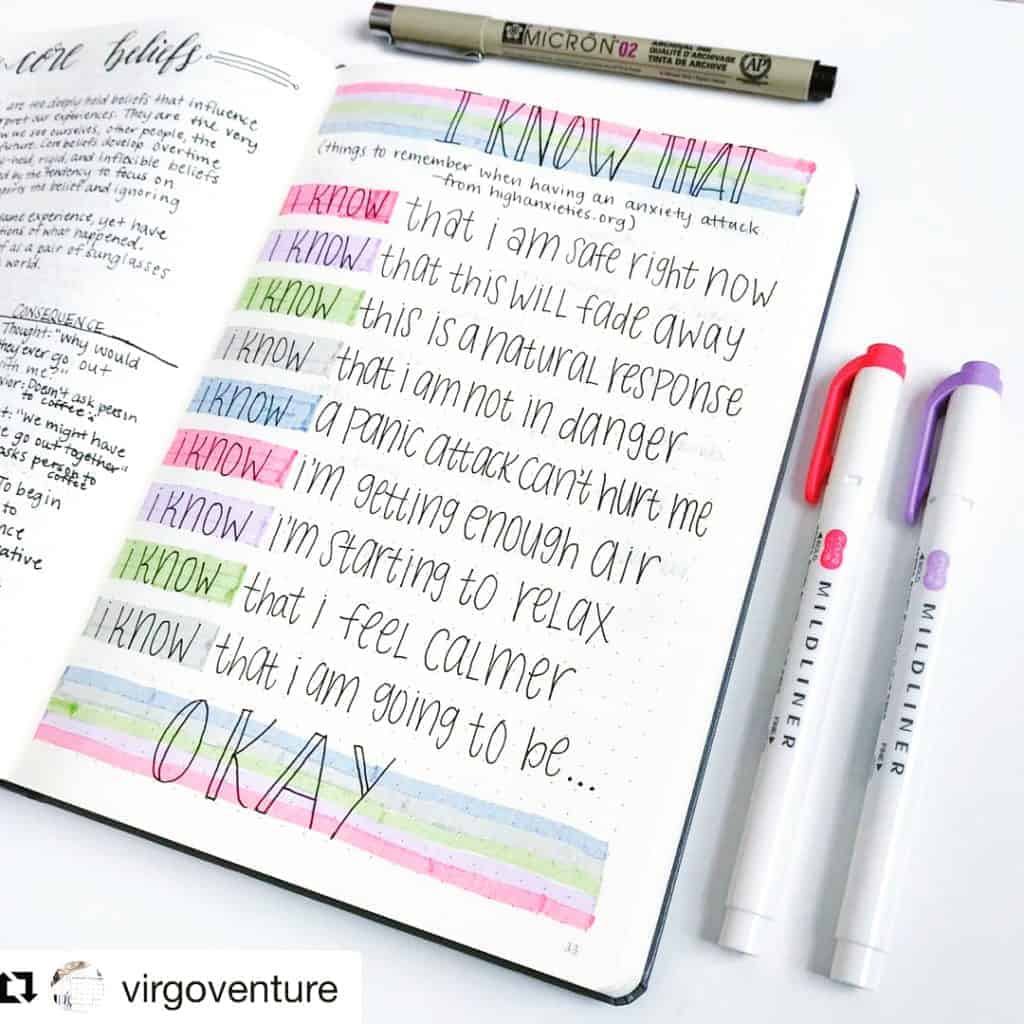 core beliefs
are the deeply held beliefs that influence
interpret our experiences. They are the very
we see ourselves, other people, the
future. Core beliefs develop overtime
held, rigid, and inflexible beliefs
by the tendency to focus on
the belief and ignoring
same experience, yet have
of what happened.
as a pair of sunglasses
world.
CONSEQUENCE
Thought: "Why would
they ever go out
with me?"
Doesn't ask person
to coffee
"We might have
go out together"
asks person to
coffee
To begin
to
I KNOW THAT
(things to remember when having an anxiety attack
from highanxieties.org)
i know that i am safe right now
i know that this will fade away
i know this is a natural response
i know that i am not in danger
i know a panic attack can't hurt me
i know i'm getting enough air
i know i'm starting to relax
i know that i feel calmer
i know that i am going to be...
OKAY
33
MICRON 02
ARCHIVAL INK
QUALITÉ D'ARCHIVAGE
TINTA DE ARCHIVE
AP
MILDLINER
FINE
MILDLINER
FINE
virgoventure